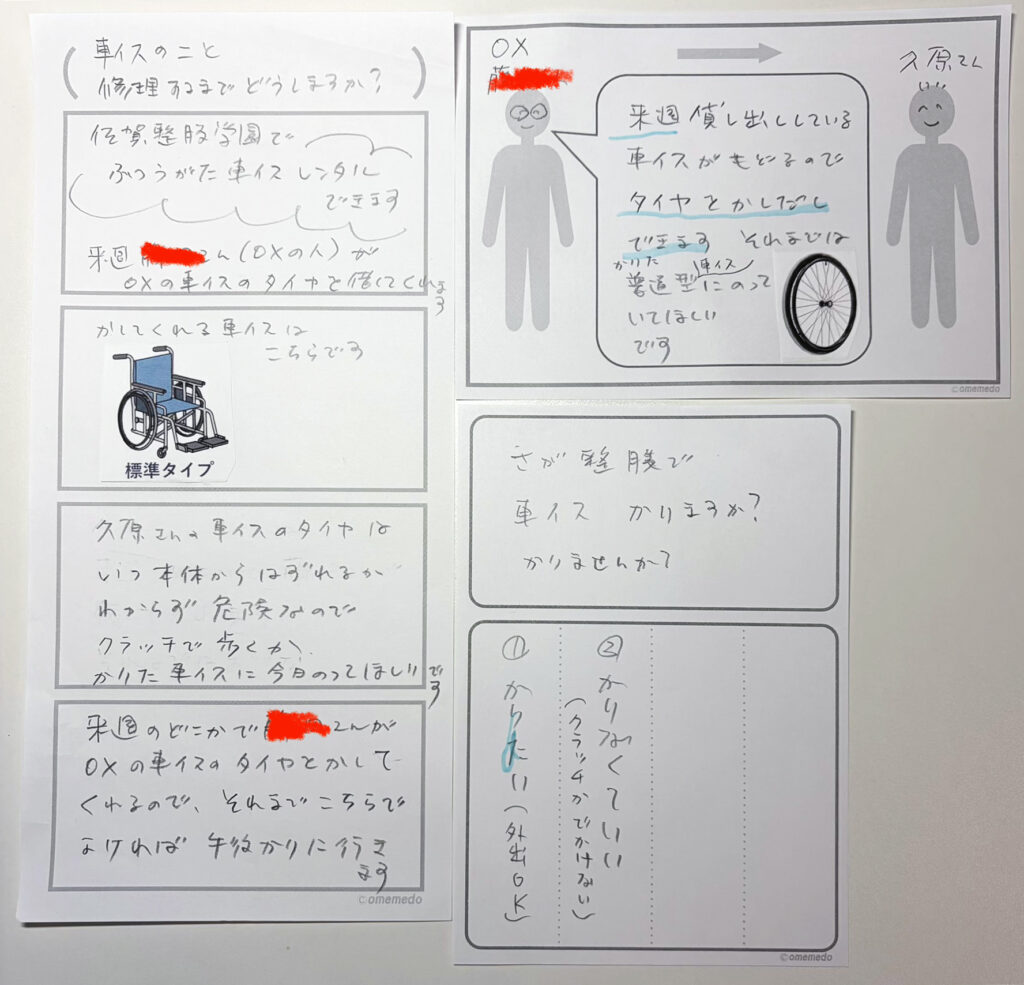 車イスのこと
修理するまでどうしますか?
佐賀整肢学園で
ふつうがた車イスレンタル
できます
来週 さん(OXの人)が
OXの車イスのタイヤを借してくれます
かしてくれる車イスは
こちらです
標準タイプ
久原さんの車イスのタイヤは
いつ本体からはずれるか
わからず危険なので
クラッチで歩くか、
かりた車イスに今日のってほしいです
来週のどこかで さんが
OXの車イスのタイヤをかして
くれるので、それまでこちらで
よければ午後かりに行き
ます
©omemedo
OX
久原さん
来週 貸し出ししている
車イスがもどるので
タイヤをかしだし
できます それまでは
かりた 車イス
普通型にのって
いてほしい
です
©omemedo
さが整肢で
車イス かりますか?
かりませんか?
① かりたい(外出OK)
② かりなくていい
(クラッチかでかけない)
©omemedo